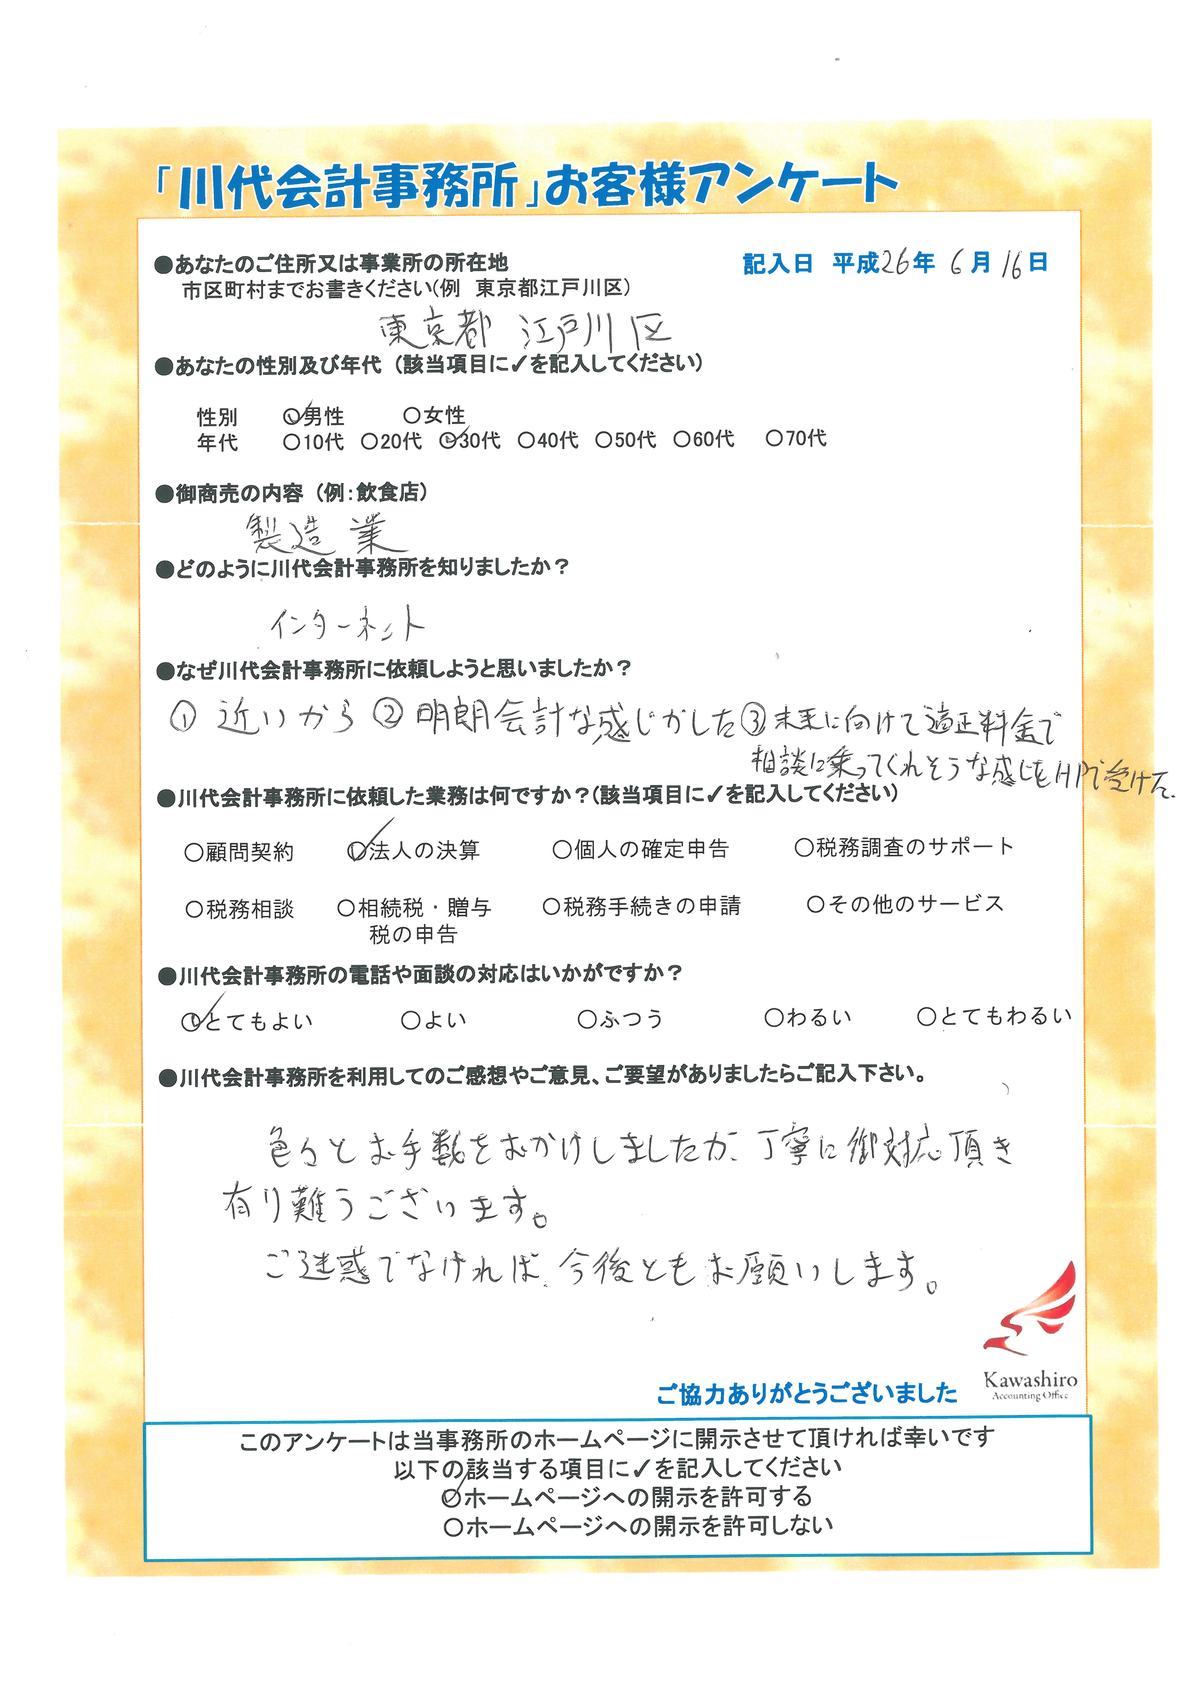 「川代会計事務所」お客様アンケート
●あなたのご住所又は事業所の所在地
記入日 平成26年 6月 16日
市区町村までお書きください(例 東京都江戸川区)
東京都 江戸川区
●あなたの性別及び年代 (該当項目に✓を記入してください)
性別 ○男性 ○女性
年代 ○10代 ○20代 ○30代 ○40代 ○50代 ○60代 ○70代
●御商売の内容 (例:飲食店)
製造業
●どのように川代会計事務所を知りましたか?
インターネット
●なぜ川代会計事務所に依頼しようと思いましたか?
① 近いから ② 明朗会計な感じがした ③ 未来に向けて適正料金で
相談に乗ってくれそうな感じをHPで受けた.
●川代会計事務所に依頼した業務は何ですか?(該当項目に✓を記入してください)
○顧問契約 ○法人の決算 ○個人の確定申告 ○税務調査のサポート
○税務相談 ○相続税・贈与 ○税務手続きの申請 ○その他のサービス
税の申告
●川代会計事務所の電話や面談の対応はいかがですか?
○とてもよい ○よい ○ふつう ○わるい ○とてもわるい
●川代会計事務所を利用してのご感想やご意見、ご要望がありましたらご記入下さい。
色々とお手数をおかけしましたが、丁寧に御対応頂き
有り難うございます。
ご迷惑でなければ、今後ともお願いします。
Kawashiro
Accounting Office
ご協力ありがとうございました
このアンケートは当事務所のホームページに開示させて頂ければ幸いです
以下の該当する項目に✓を記入してください
○ホームページへの開示を許可する
○ホームページへの開示を許可しない